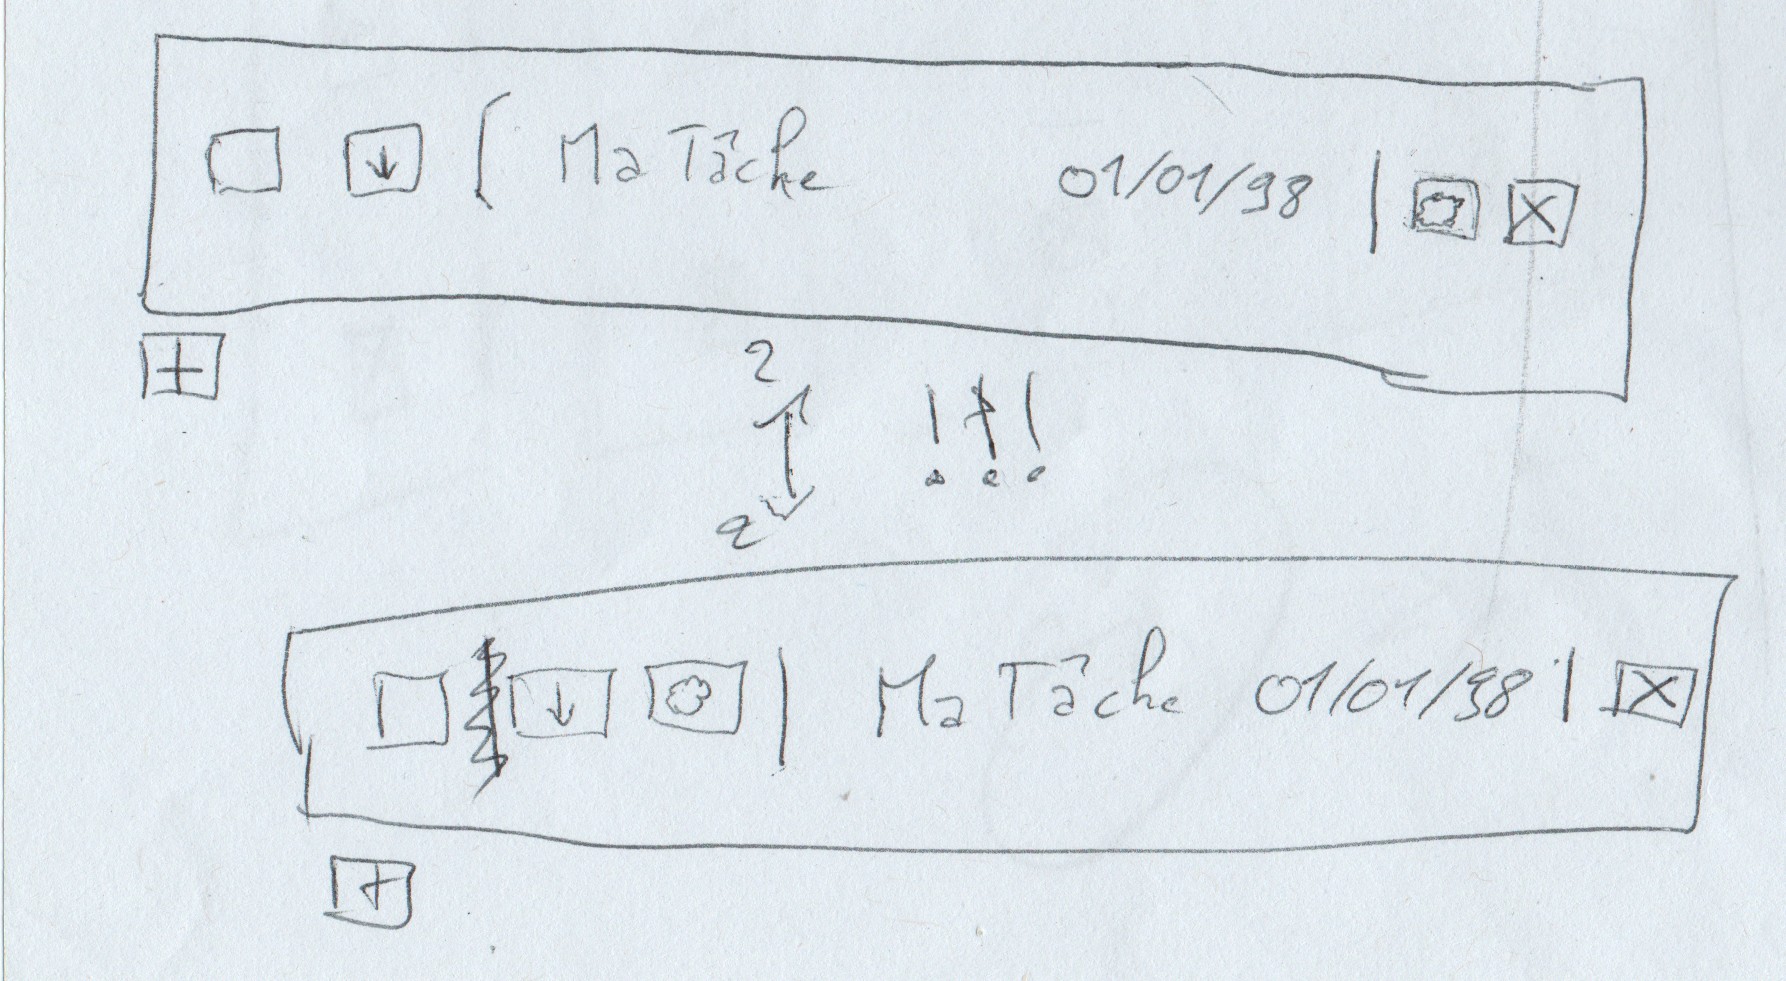 Ma Tâche 01/01/98
2
! ! !
2
Ma Tâche 01/01/98